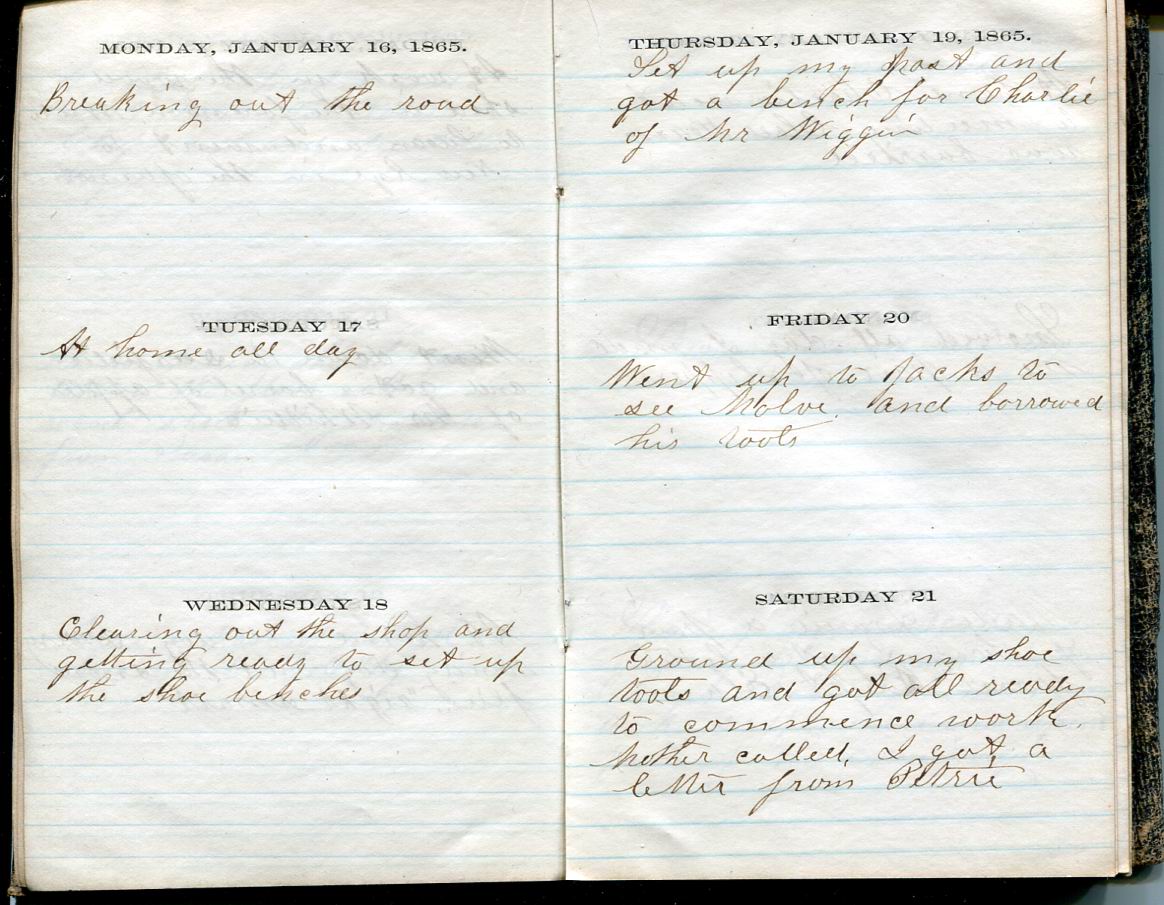 MONDAY, JANUARY 16, 1865.
Breaking out the road
TUESDAY 17
At home all day
WEDNESDAY 18
Clearing out the shop and
getting ready to set up
the shoe benches
THURSDAY, JANUARY 19, 1865.
Set up my post and
got a bench for Charlie
of Mr Wiggin
FRIDAY 20
Went up to Jacks to
see and borrowed
his tools
SATURDAY 21
Ground up my shoe
tools and got all ready
to commence work.
Mother called, I got a
letter from Petrie